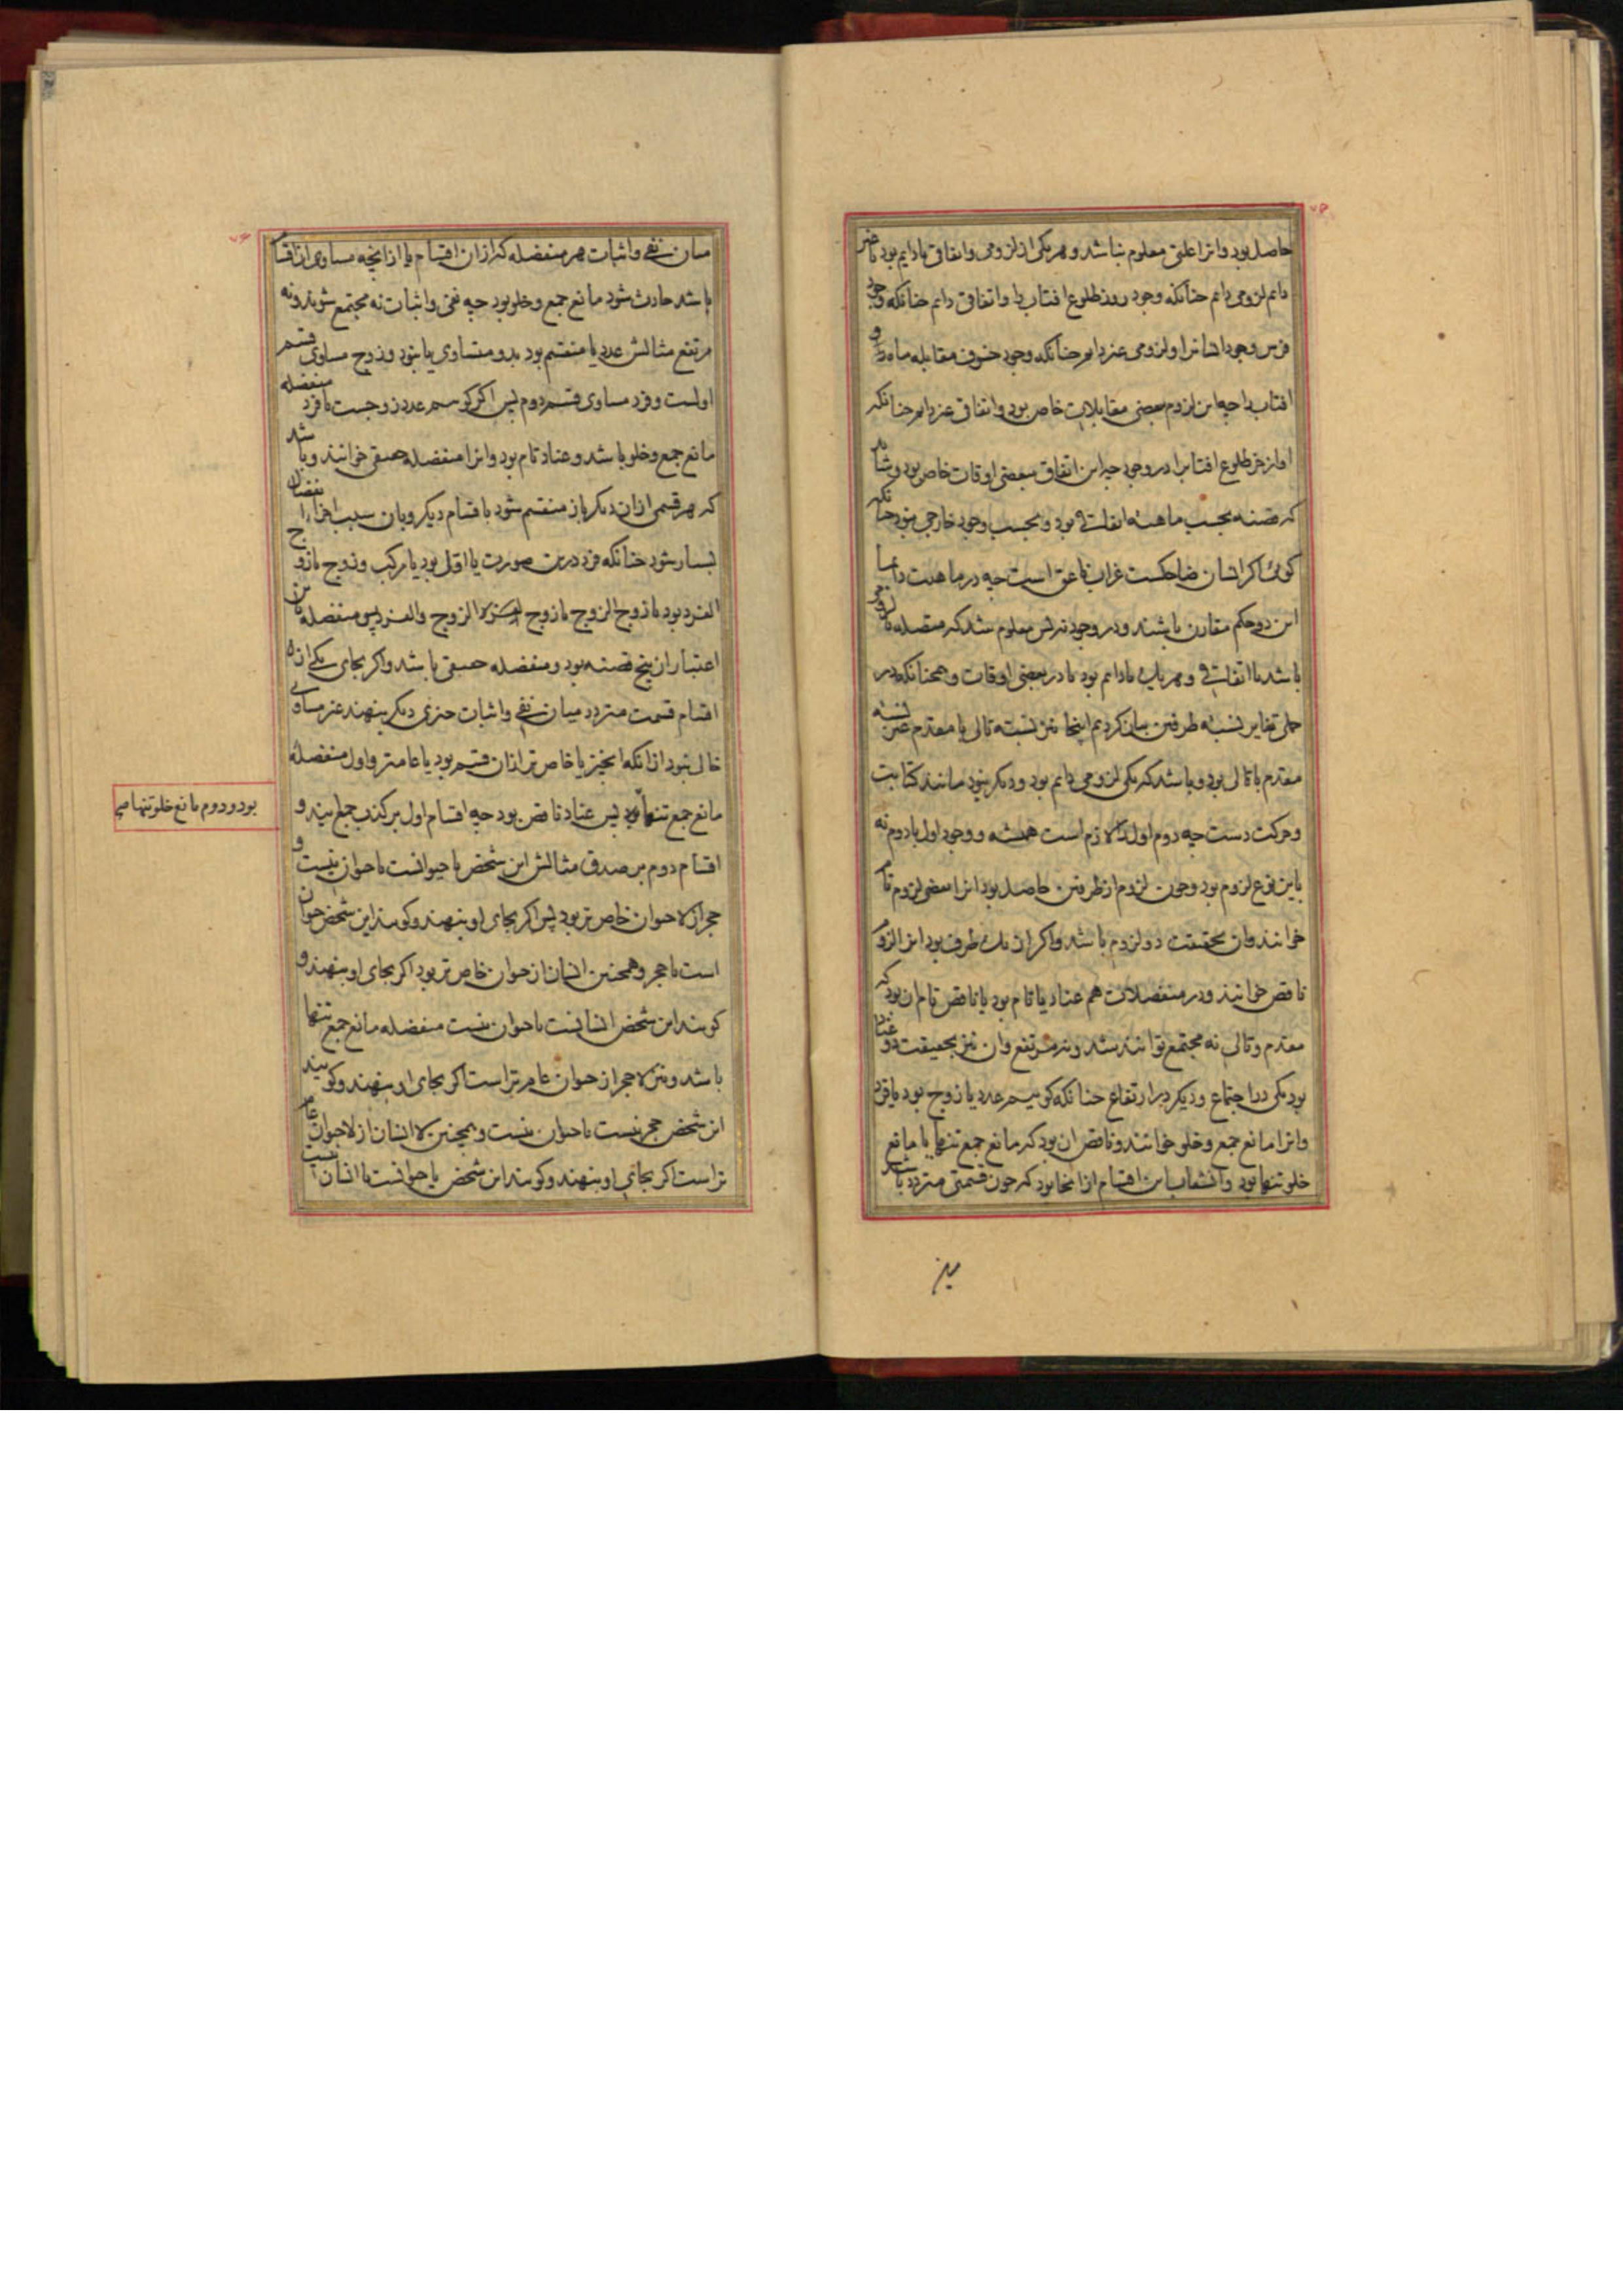 حاصل بود و انرا علتی معلوم نباشد و هر یکی از لزومی و اتفاقی یا دایم بود یا غیر
دایم لزومی دایم چنانکه وجود روز طلوع افتاب را و اتفاقی دایم چنانکه وجود
فرس وجود انسانرا و لزومی غیر دایم چنانکه وجود خسوف مقابله ماه را و
افتاب را چه این لزوم بعضی مقابلات خاص بود و اتفاقی غیر دایم چنانکه
اواز خر طلوع افتابرا در وجود چه این اتفاق ببعضی اوقات خاص بود و شاید
که قضیه بحسب ماهیة اتفاقی بود و بحسب وجود خارجی نبود چنانکه
کوئی اکر انسان ضاحکست غراب ناعق است چه در ماهیت دایما
این دو حکم مقارن باشند و در وجود نه پس معلوم شد که متصله یا لزومی
باشد یا اتفاقی و هر یک یا دایم بود یا در بعضی اوقات و همچنانکه در
حملی تغایر نسبة طرفین بیان کردیم اینجا نیز نسبة تالی با مقدم غیر نسبة
مقدم با تالی بود و باشد که یکی لزومی دایم بود و دیکر نبود مانند کتابت
و حرکت دست چه دوم اول را لازم است همیشه و وجود اول با دوم نه
باین نوع لزوم بود و چون لزوم از طرفین حاصل بود انرا بعضی لزوم تام
خوانند و ان بحقیقت دو لزوم باشد و اکر از یک طرف بود انرا لزوم
ناقص خوانند و در منفصلات هم عناد یا تام بود یا ناقص تام ان بود که
مقدم و تالی نه مجتمع توانند شد و نه مرتفع و ان نیز بحقیقت دو عناد
بود یکی در اجتماع و دیکر در ارتفاع چنانکه کوییم عدد یا زوج بود یا فرد
و انرا مانع جمع و خلو خوانند و ناقص ان بود که مانع جمع تنها یا مانع
خلو تنها بود و انشعاب این اقسام از انجا بود که چون قسمتی متردد باشد
میان
میان نفی و اثبات هر منفصله که از ان اقسام یا از انچه مساوی ان اقسام
باشد حادث شود مانع جمع و خلو بود چه نفی و اثبات نه مجتمع شوند و نه
مرتفع مثالش عدد یا منقسم بود بدو متساوی یا نبود و زوج مساوی قسم
اولست و فرد مساوی قسم دوم پس اکر کوییم عدد زوجست یا فرد منفصله
مانع جمع و خلو باشد و عناد تام بود و انرا منفصله حقیقی خوانند و باشد
که هر قسمی از ان دیکر باز منقسم شود باقسام دیکر و بان سبب اجزاء انفصال
بسیار شود چنانکه فرد درین صورت یا اول بود یا مرکب و زوج یا زوج
الفرد بود یا زوج الزوج یا زوج الزوج والفرد پس منفصله باین
اعتبار ان پنج قضیه بود و منفصله حقیقی باشد و اکر بجای یکی از
اقسام قسمت متردد میان نفی و اثبات چیزی دیکر بنهند غیر مساوی
خالی نبود از انکه انچیز یا خاص تر از ان قسم بود یا عامتر و اول منفصله
مانع جمع تنها بود پس عناد ناقص بود چه اقسام اول بر کذب جمع ایند و
بود و دوم مانع خلو تنها صح
اقسام دوم بر صدق مثالش این شخص یا حیوانست یا حیوان نیست و
حجر از لا حیوان خاص تر بود پس اکر بجای او بنهند و کویند این شخص حیوان
است یا حجر و همچنین انسان از حیوان خاص تر بود اکر بجای او بنهند و
کویند این شخص انسانست یا حیوان نیست منفصله مانع جمع تنها
باشد و نیز لا حجر از حیوان عام تر است اکر بجای او بنهند و کویند
این شخص حجر نیست یا حیوان نیست و همچنین لا انسان از لا حیوان عام
تر است اکر بجای او بنهند و کویند این شخص یا حیوانست یا انسان نیست